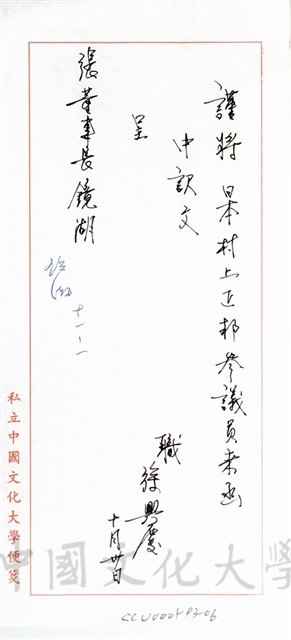 謹將 日本村上正邦參議員來函
中訳文
呈
張董事長鏡湖
十一、二
職 徐興慶
十月廿日
私立中國文化大學便箋
中國文化大學